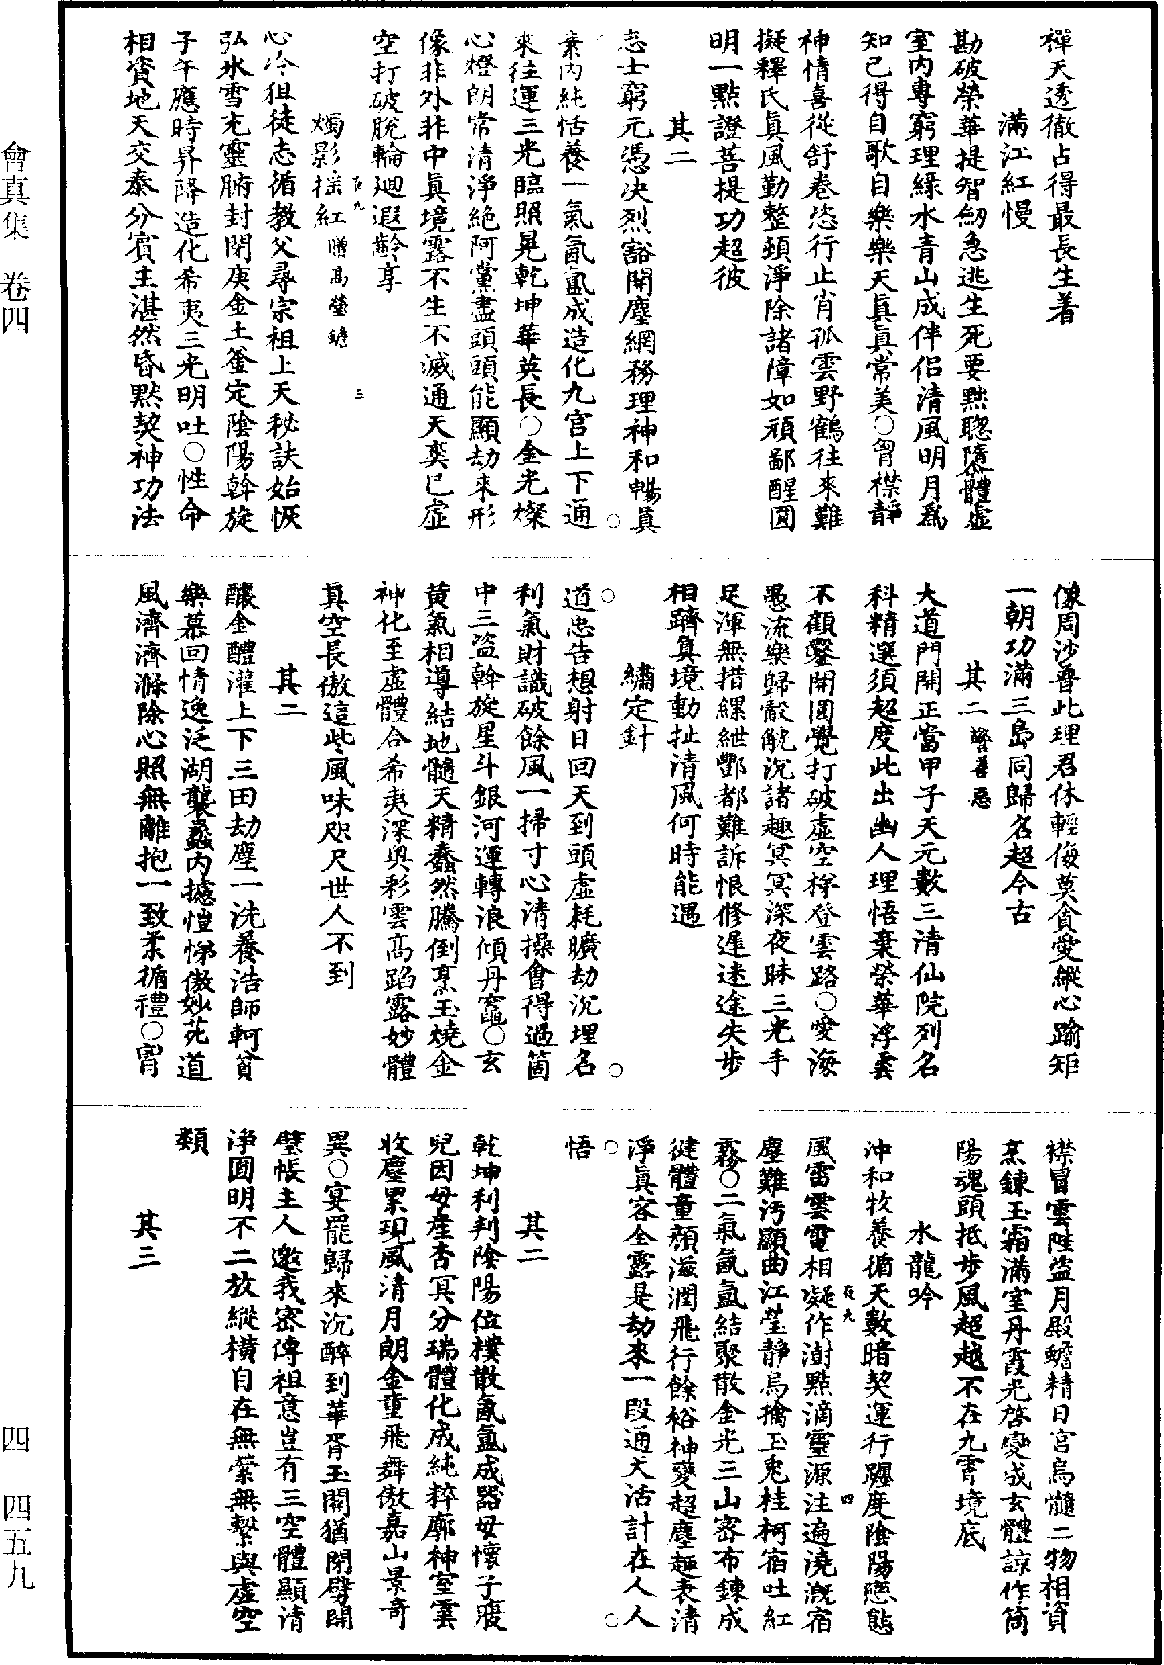 禪天透徹占得最長生著
滿江紅慢
勘破榮華提智劒急逃生死要黜聰隳體虛
室內專窮理綠水青山成伴侶清風明月爲
知己得自歌自樂樂天眞眞常美○胷襟靜
神情喜從舒卷恣行止肖孤雲野鶴往來難
擬釋氏眞風勤整頓淨除諸障如頑鄙醒圓
明一點證菩提功超彼
其二
志士窮元憑决烈豁開塵網務理神和暢眞
素內純恬養一氣氤氳成造化九宮上下通
來往運三光臨照晃乾坤華英長○金光燦
心燈朗常清淨絕阿黨盡頭頭能顯劫來形
像非外非中眞境露不生不滅通天奕已虛
空打破脫輪廻遐齡享
燭影搖紅贈高瑩蟾
心冷狙徒志循教父尋宗祖上天秘訣始恢
弘氷雪充靈腑封閉庚金土釜定陰陽斡旋
子午應時昇降造化希夷三光明吐○性命
相資地天交泰分賓主湛然昏默契神功法
像周沙界此理君休輕侮莫貪愛縱心踰矩
一朝功滿三島同歸名超今古
其二警善惡
大道門開正當甲子天元數三清仙院列名
科精選須超度此出幽人理悟棄榮華浮雲
不顧鑿開圓覺打破虛空梓登雲路○愛海
愚流樂歸骰舩沉諸趣冥冥深夜昧三光手
足渾無措縲紲酆都難訴恨修遲迷途失步
相躋眞境動扯清風何時能遇
繡定針
道忠告想射日回天到頭虛耗曠劫沉埋名
利氣財識破餘風一掃寸心清操會得過箇
中三盜斡旋星斗銀河運轉浪傾丹竈○玄
黃氣相導結地髓天精蠢然騰倒烹玉燒金
神化至虛體合希夷深奧彩雲高蹈露妙體
眞空長傲這些風味咫尺世人不到
其二
釀金醴灌上下三田劫塵一洗養浩師軻貧
樂慕回情逸泛湖襲蠡內攄愷悌傲妙芤道
風濟濟滌除心照無離抱一致柔循禮○宵
襟冒雲陛盜月殿蟾精日宮烏髓二物相資
烹鍊玉霜滿室丹霞光啓變成玄體諒作箇
陽魂頭抵步風超越不在九霄境底
水龍吟
沖和牧養循天數暗契運行躔度陰陽戀態
風雷雲電相凝作澍點滴靈源注遍澆溉宿
塵難污顯曲江瑩靜烏擒玉兎桂柯宿吐紅
霧○二氣氤氳結聚散金光三山密布鍊成
健體童顏滋潤飛行餘裕神變超塵趣表清
淨眞容全露是劫來一段通天活計在人人
悟
其二
乾坤利判陰陽位樸散氤氳成器母懷子處
兒因母產杳冥分瑞體化成純粹廓神室雲
收塵累現風清月朗金童飛舞傲嘉山景奇
異○宴罷歸來沉醉到華胥玉關猶閉劈開
璧帳主人邀我密傳祖意豈有三空體顯清
淨圓明不二放縱橫自在無縈無繫與虛空
類
其三
會眞集 卷四
四 四五九